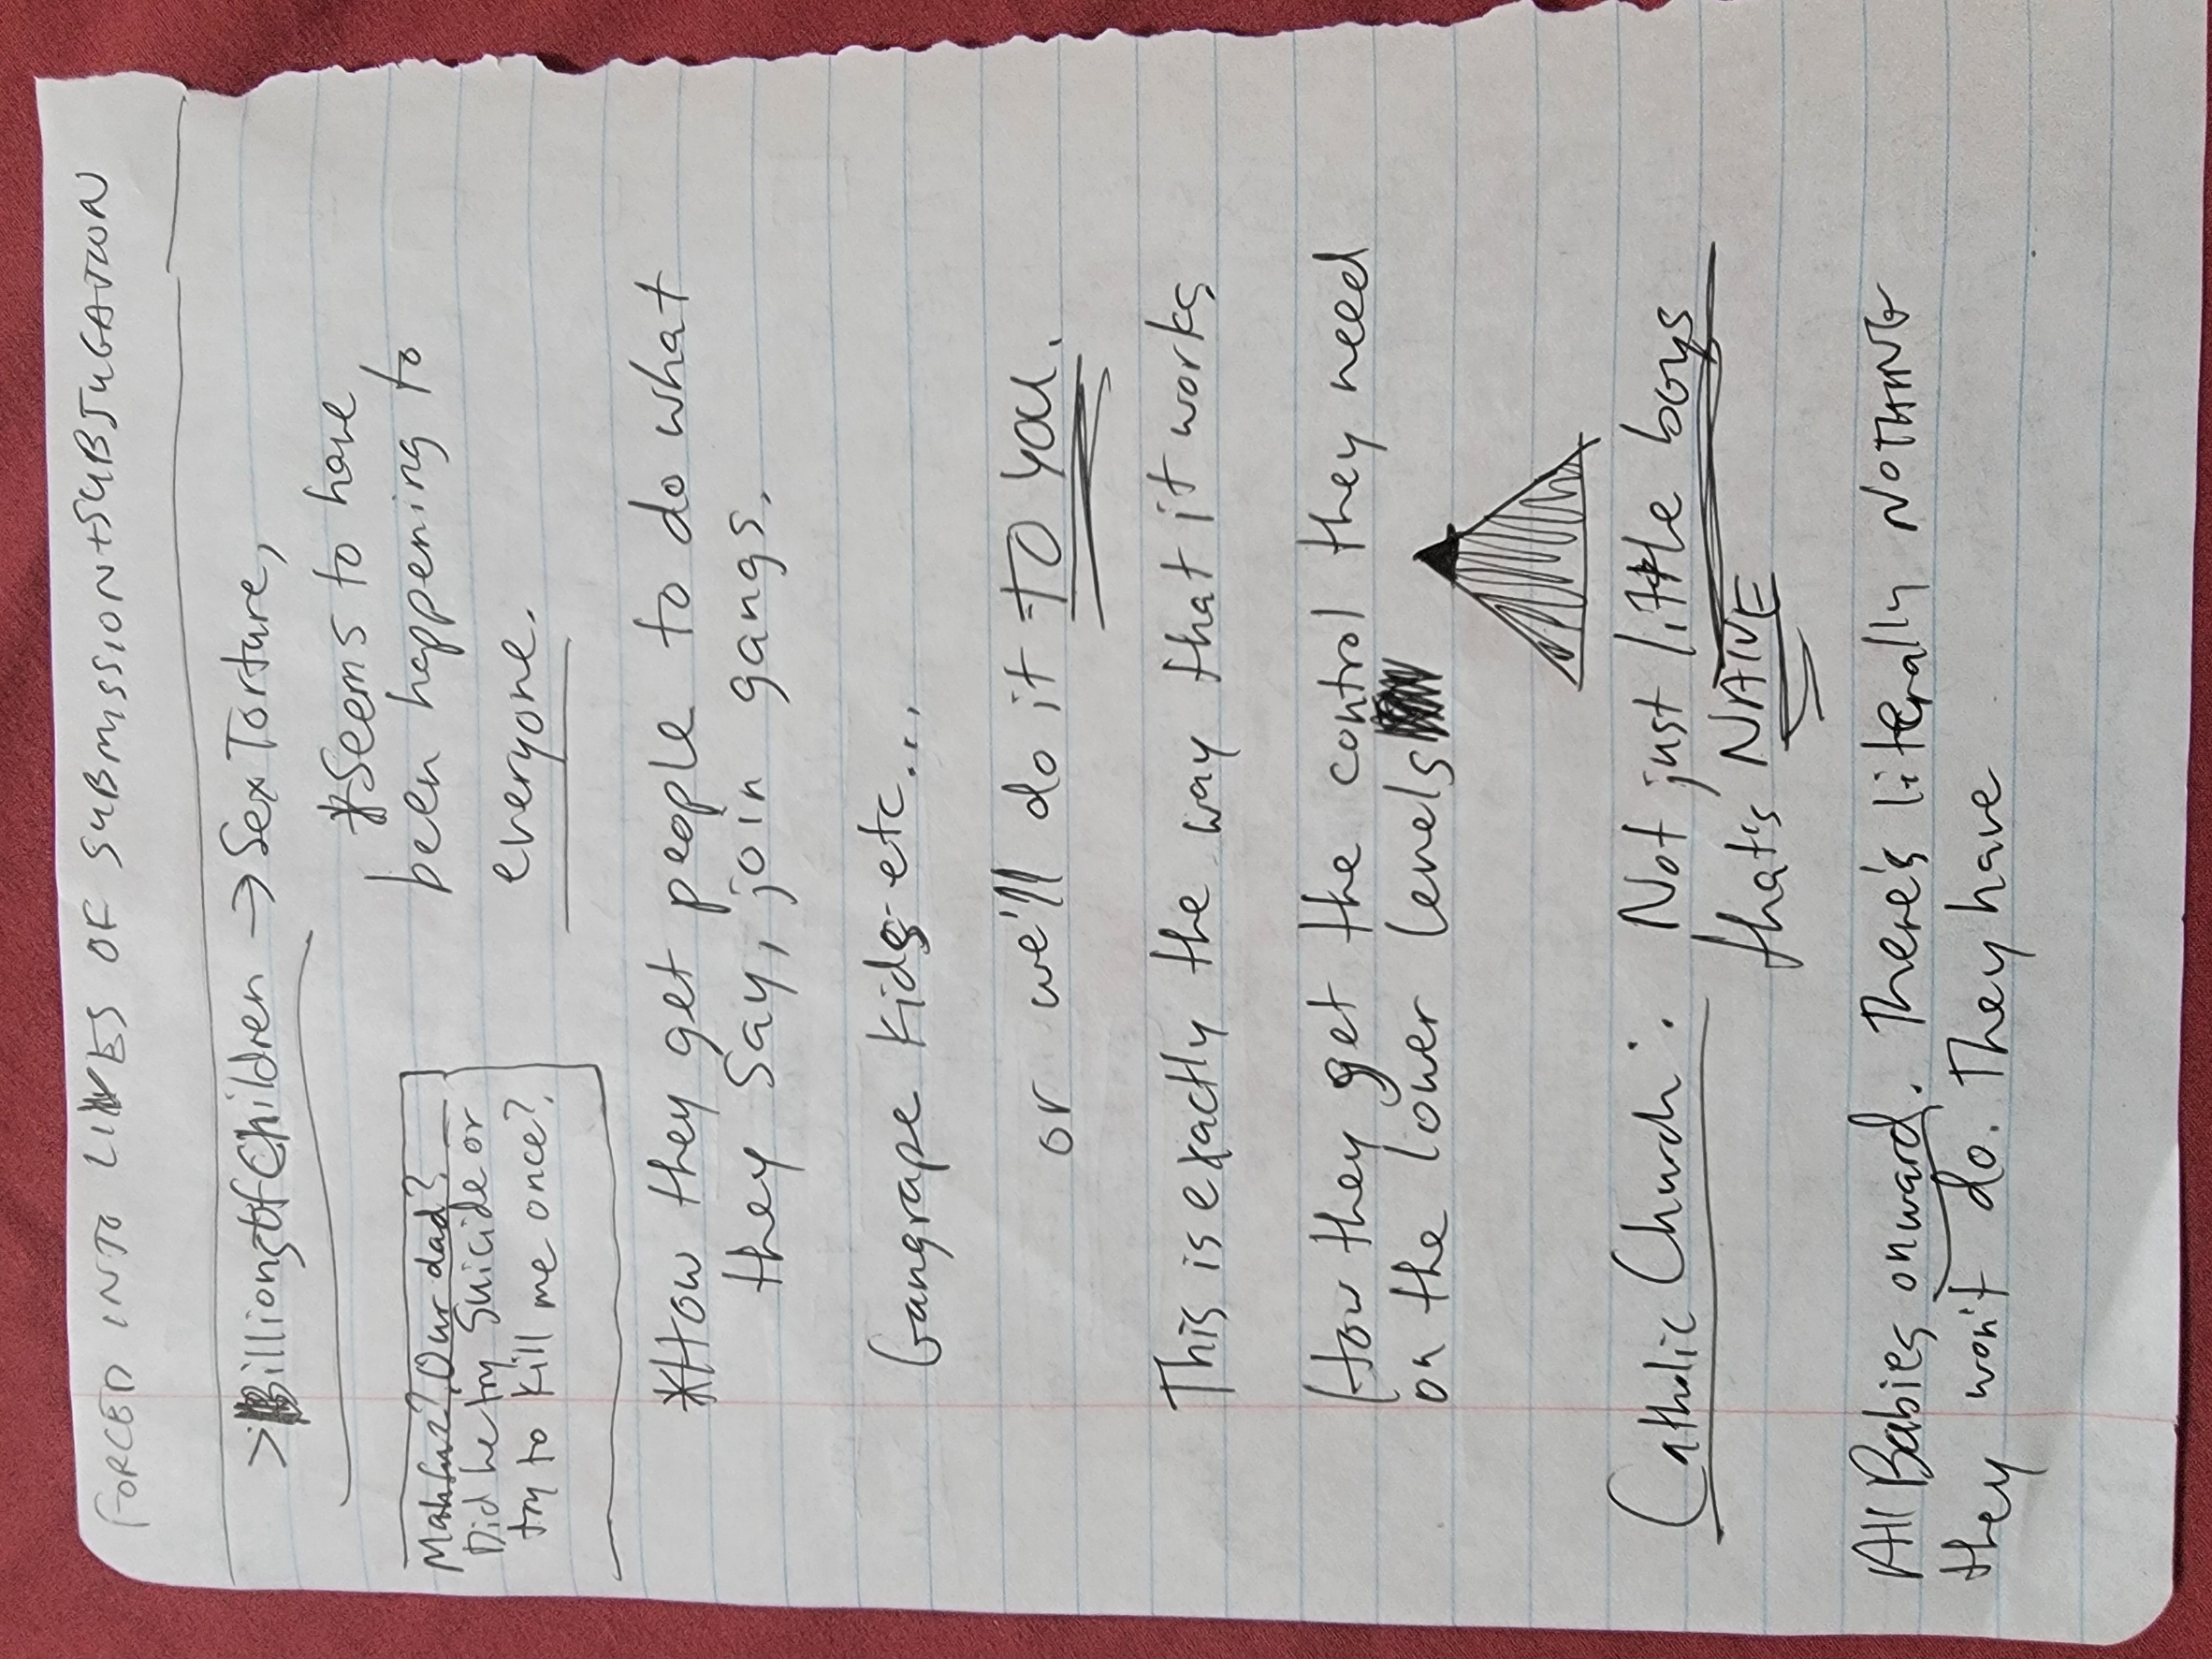 FORCED INTO LIVES OF SUBMISSION+SUBJUGATION
>Billions of Children → Sex Torture,
*Seems to have
been happening to
everyone.
Our dad?
Did he try Suicide or
try to kill me once?
*How they get people to do what
they say, join gangs.
Gangrape kids etc...
or we'll do it TO YOU.
This is exactly the way that it works
How they get the control they need
on the lower levels
Catholic Church: Not just little boys
that's NAIVE
All Babies onward. There's literally NOTHING
they won't do. They have